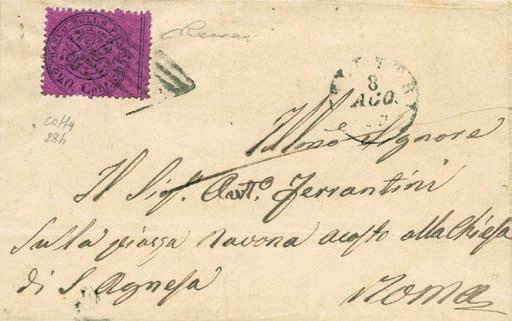 FRANCO BOLLO POSTALE
20 Cent
8
AGO
Coll 4
28h
Illmo e Signore
Il Sigr. Anto. Ferrantini
Sulla piazza Navona acosto alla Chiesa
di S. Agnesa
Roma